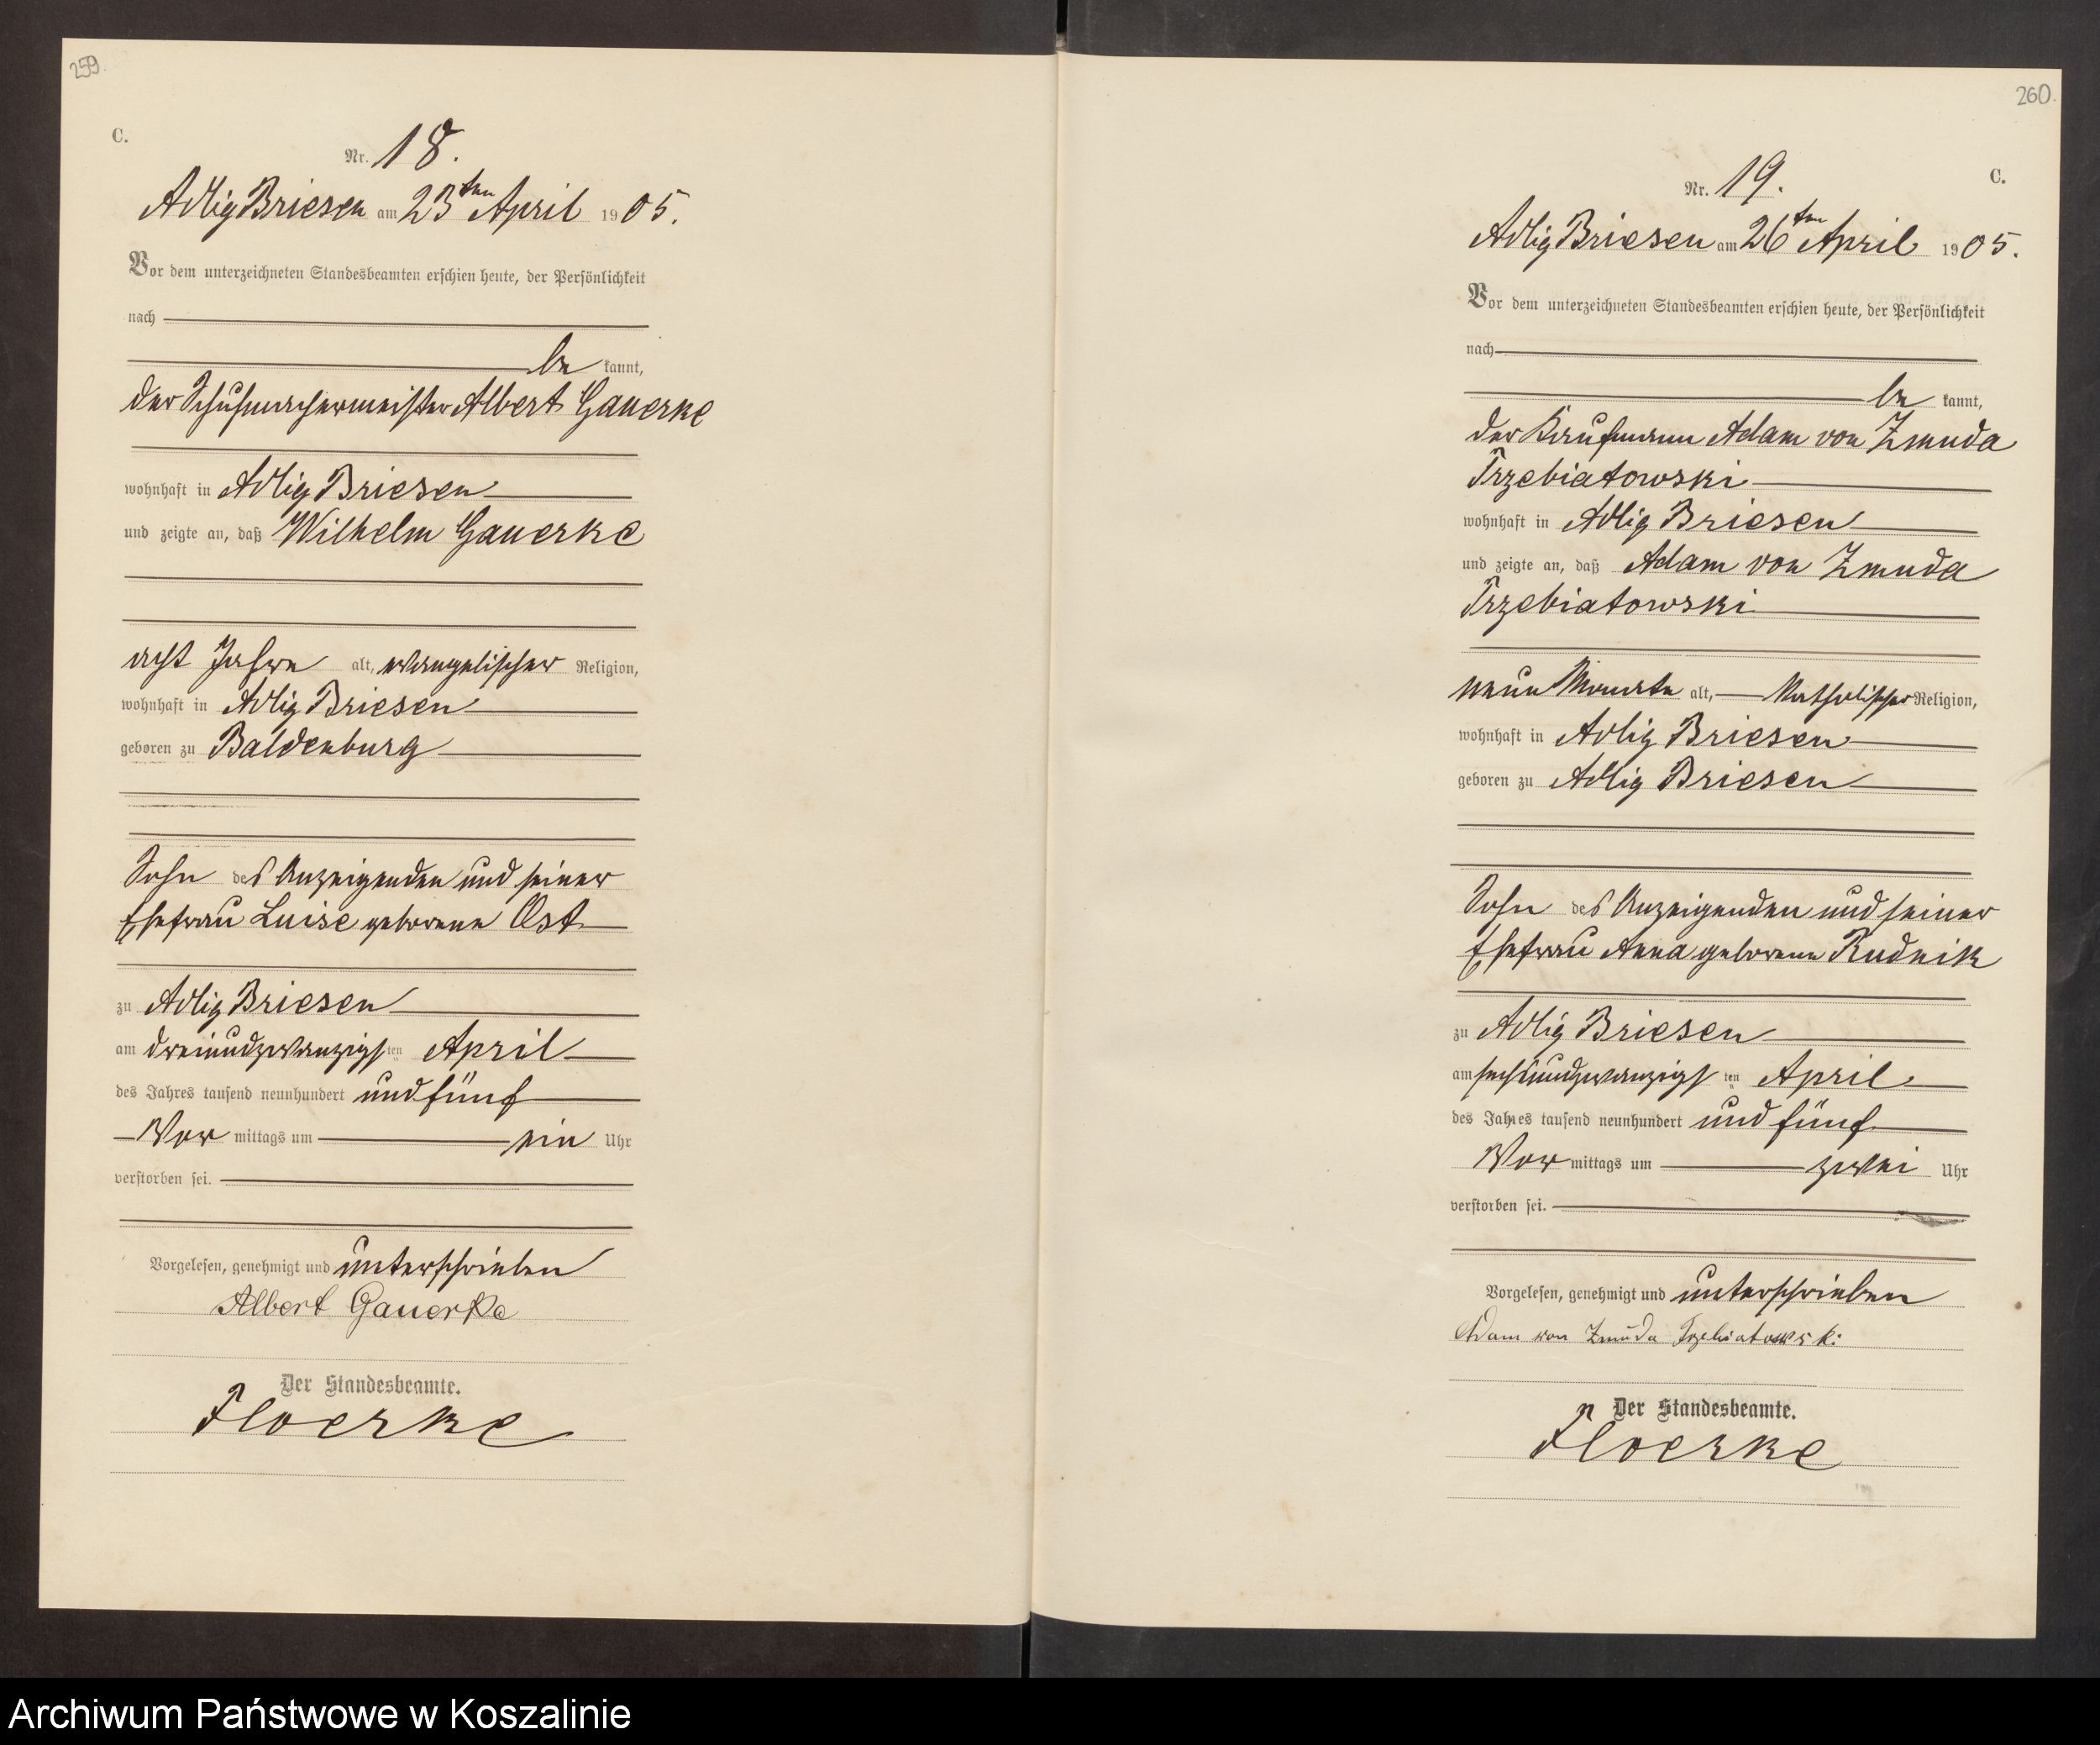 259.
C.
Nr. 18.
Adlig Briesen am 23ten April 1905.
Vor dem unterzeichneten Standesbeamten erschien heute, der Persönlichkeit
nach
be kannt,
der Schuhmachermeister Albert Gauerke
wohnhaft in Adlig Briesen
und zeigte an, daß Wilhelm Gauerke
acht Jahre alt, evangelischer Religion,
wohnhaft in Adlig Briesen
geboren zu Baldenburg
Sohn des Anzeigenden und seiner
Ehefrau Luise geborene Ost
zu Adlig Briesen
am dreiundzwanzigsten April
des Jahres tausend neunhundert und fünf
Vor mittags um ein Uhr
verstorben sei.
Vorgelesen, genehmigt und unterschrieben
Albert Gauerke
Der Standesbeamte.
Floerke
260.
C.
Nr. 19.
Adlig Briesen am 26ten April 1905.
Vor dem unterzeichneten Standesbeamten erschien heute, der Persönlichkeit
nach
be kannt,
der Kaufmann Adam von Zmuda
Trzebiatowski
wohnhaft in Adlig Briesen
und zeigte an, daß Adam von Zmuda
Trzebiatowski
neun Monate alt, katholischer Religion,
wohnhaft in Adlig Briesen
geboren zu Adlig Briesen
Sohn des Anzeigenden und seiner
Ehefrau Anna geborene Rudnik
zu Adlig Briesen
am sechsundzwanzigsten April
des Jahres tausend neunhundert und fünf
Vor mittags um zwei Uhr
verstorben sei.
Vorgelesen, genehmigt und unterschrieben
Adam von Zmuda Trzebiatowski
Der Standesbeamte.
Floerke
Archiwum Państwowe w Koszalinie